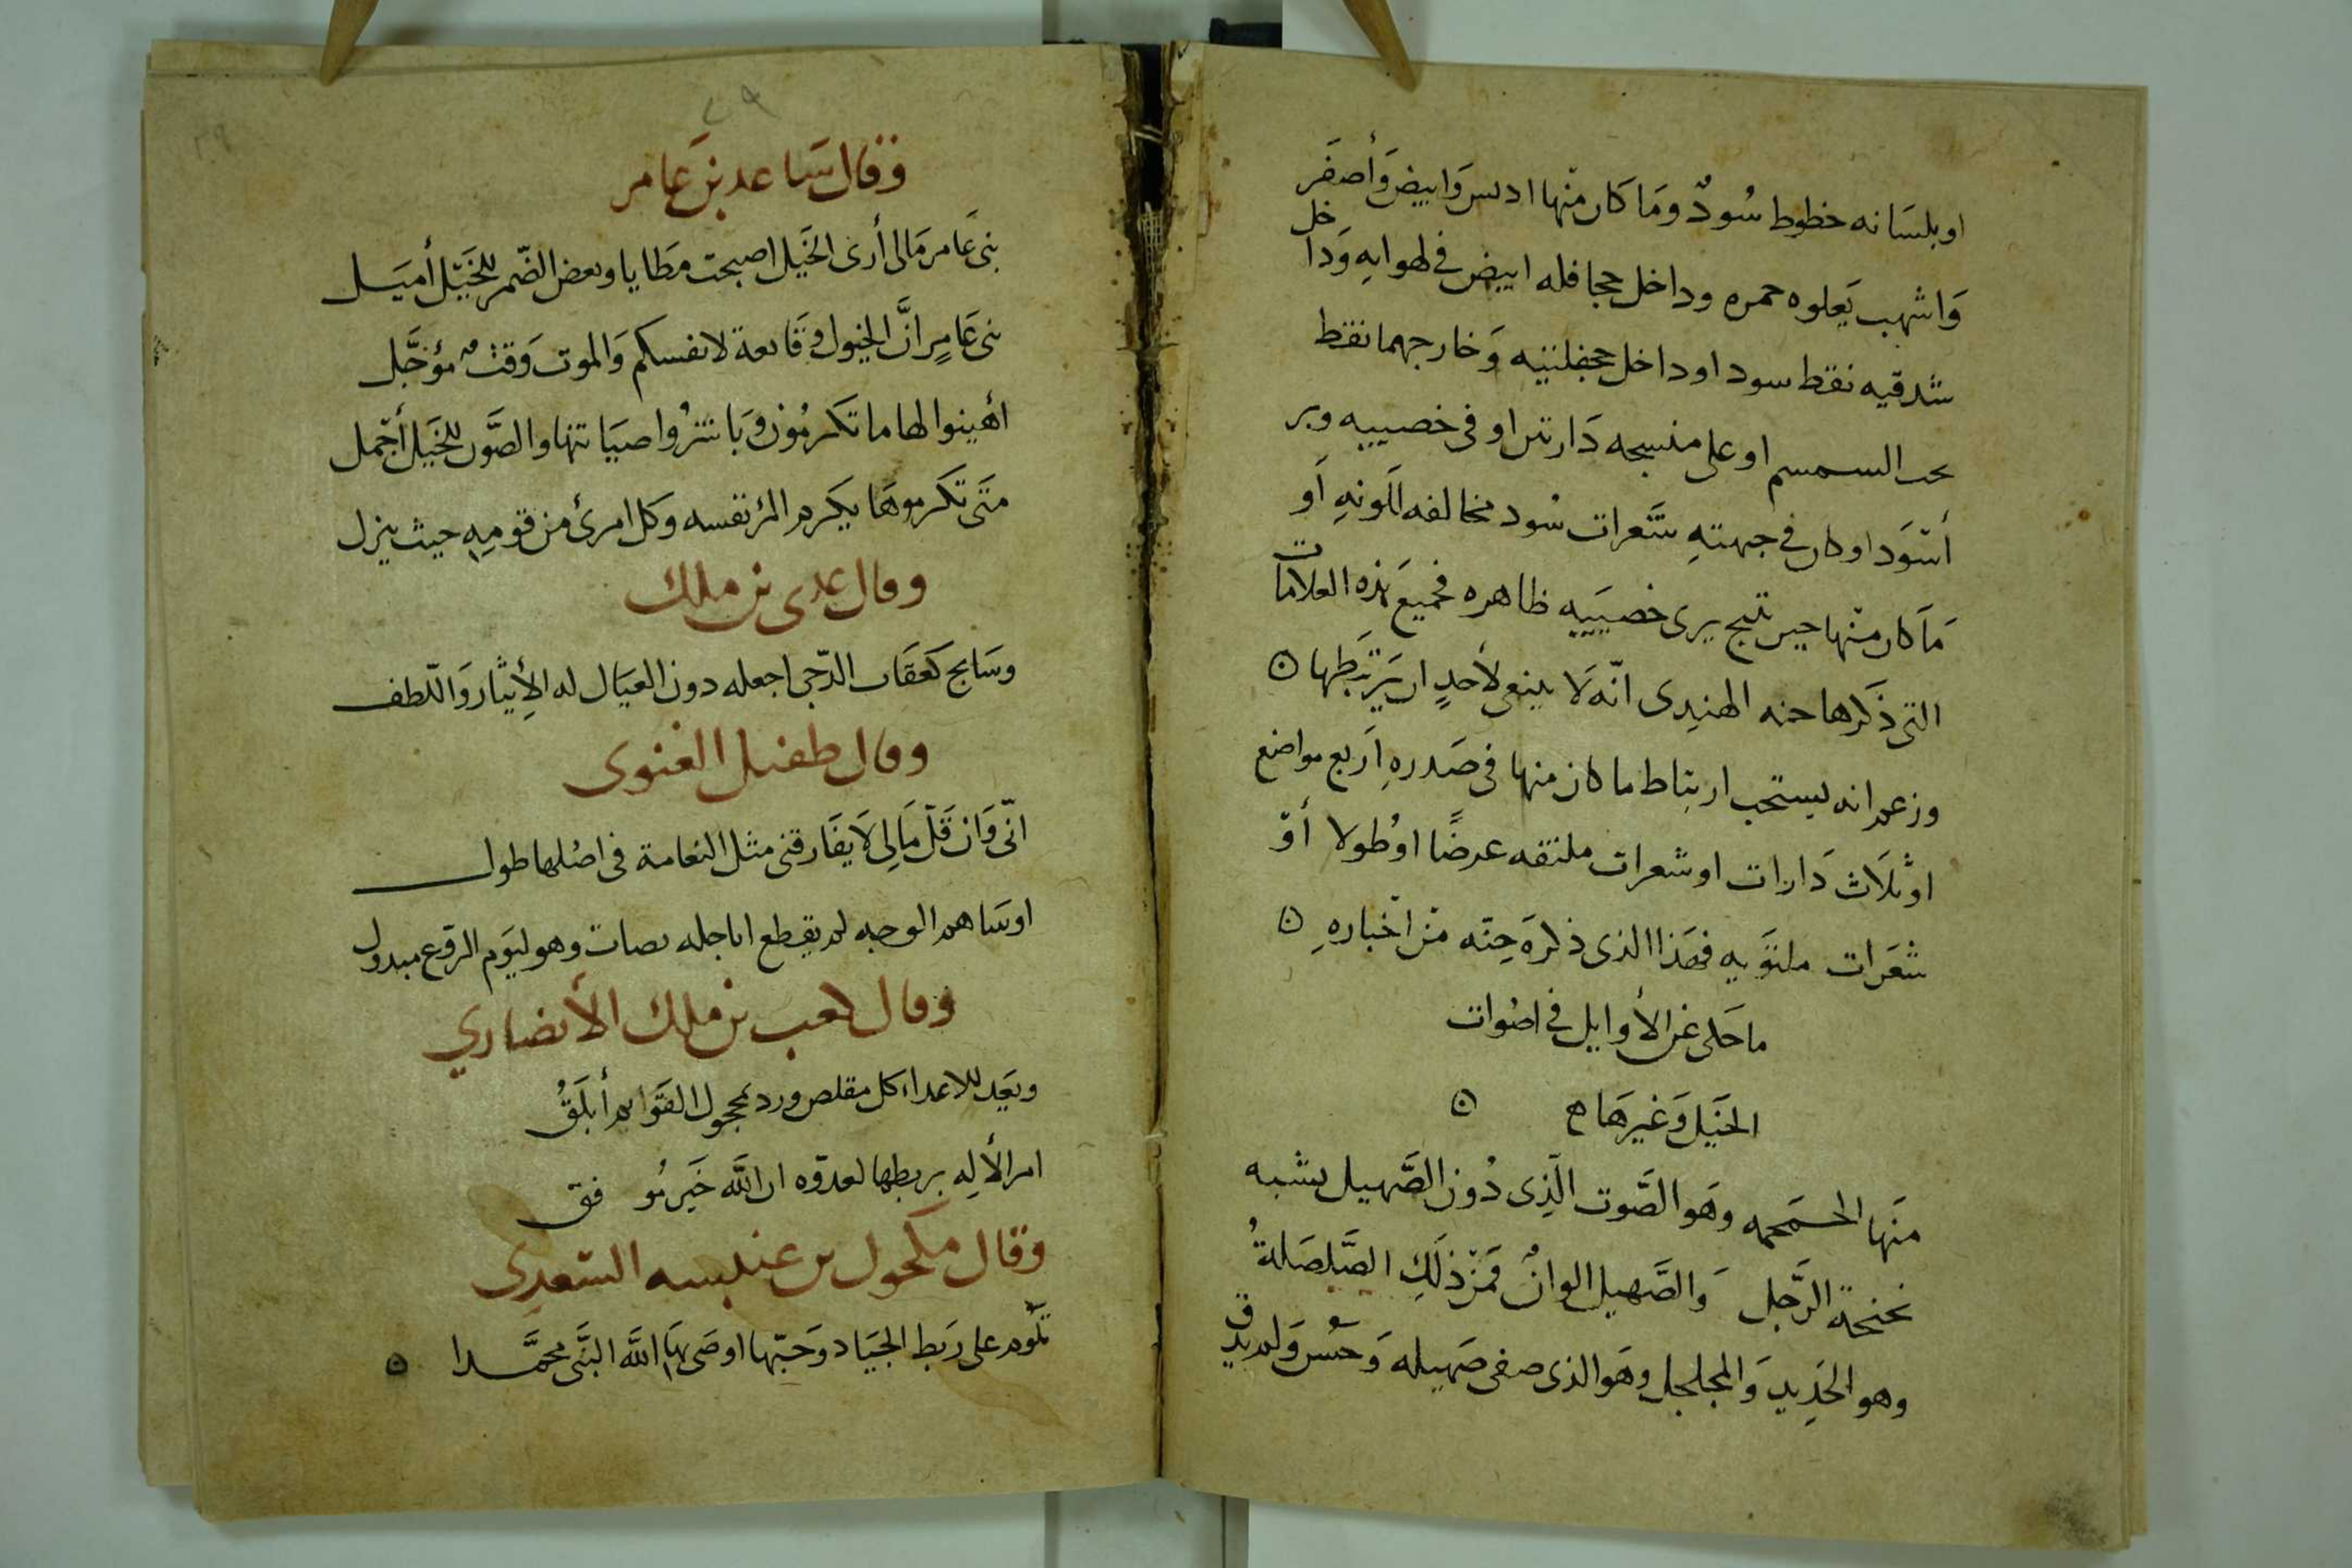 او بلسانه خطوط سُودٌ وَمَا كان منها ادبس وَابيض وَأصفَر
وَاشهب يَعلوه حمره وداخل جحافله ابيض في لهواته وَداخل
شدقيه نقط سود او داخل جحفلتيه وَخارجهما نقط
كحب السمسم او على منسجه دَارتين او فى خصييه وبر
أسْوَد او كان في جبهتهِ شَعرات سُود مخالفه للونهِ اَو
مَا كان منها حين ينتج يرى خصييَيه ظاهره فجميعَ هذه العلامات
التى ذَكرها حنه الهندِى انّه لَا ينبغى لأحدٍ ان يَرتَبِطها ه
وزعم انه يستحب ارتباط ما كان منها فى صَدرهِ اَربع مواضع
او ثلَاث دَارات او شعرات ملتفه عرضًا او طُولا أوْ
شعَرات ملتوَيه فهَذا الذى ذكرَه حِنّه مِنْ اخْبارهِ ه
ما حَكى عَن الأوايل في اصْوات
الخَيل وَغيرهَا ه
منَها الحَمحمه وهَو الصَّوت الّذِى دُون الصَّهيل يشبه
نحنحة الرَّجل وَالصَّهيل الوانٌ فمَنْ ذلَكِ الصَّلصَلةُ
وهو الحَدِيد وَالمجلجل وهَو الذى صفى صَهيله وَحَسُن وَلم يدق
٢٩
وَقال سَاعد بن عَامر
بنى عَامر مَالى أرَى الخَيل اصبحت مَطايا وبعض الضّمر للخَيْل أميَل
بنى عَامِرٍ انَّ الخيول وقَايةة لانفسكم وَالموت وَقتٌ مُؤجَّل
أهينوا لها ما تكَرمُون وَباشرُوا صيَانتها والصَّون للخَيل أجمل
متَى تكَرموهَا يكَرم المرُ نفسه وَكل امرئ من قومِهِ حيث ينزل
وقال عدى بن ملك
وسَابح كعَقَاب الدّجى اجعله دون العيَال له الأِيثار وَاللّطف
وقال طفيل الغنوى
انّى وَان قَلّ مَالِى لَا يفَارقنى مثل النعامة فى اصْلها طول
او سَاهم الوجه لم يقطع اباجله يصان وهو ليَوم الرَّوع مبدول
وقال كعب بن ملك الأنصاري
ويَعد للاعداء كل مقلص ورد محجول القوَايم أبلَقُ
امر الألِه بربطها لعدوّه ان اللَّه خَير مُو فق
وَقال مكحول بن عنبسه السَعدِى
تلَوم على رَبط الجيَاد وَحَبّها اوصَى بهَا اللَّه النبَّى محمَّدا ه